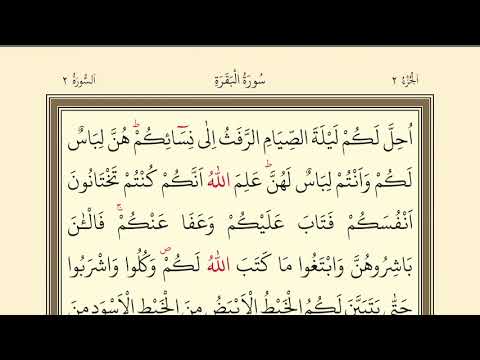 اَلْجُزْءُ ٢ سُورَةُ الْبَقَرَةِ اَلسُّورَةُ ٢
اُحِلَّ لَكُمْ لَيْلَةَ الصِّيَامِ الرَّفَثُ اِلٰى نِسَٓائِكُمْۜ هُنَّ لِبَاسٌ
لَكُمْ وَاَنْتُمْ لِبَاسٌ لَهُنَّۜ عَلِمَ اللّٰهُ اَنَّكُمْ كُنْتُمْ تَخْتَانُونَ
اَنْفُسَكُمْ فَتَابَ عَلَيْكُمْ وَعَفَا عَنْكُمْۚ فَالْـٰٔنَ
بَاشِرُوهُنَّ وَابْتَغُوا مَا كَتَبَ اللّٰهُ لَكُمْۖ وَكُلُوا وَاشْرَبُوا
حَتّٰى يَتَبَيَّنَ لَكُمُ الْخَيْطُ الْاَبْيَضُ مِنَ الْخَيْطِ الْاَسْوَدِ مِنَ